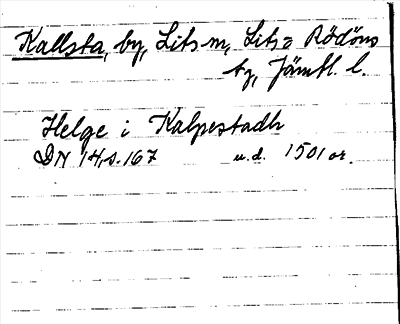 Kallsta, by, Lits sn, Lits o Rödöns
tg, Jämtl. l.
Helge i Kalpestadh
DN 14, s. 167 u.d. 1501 or.